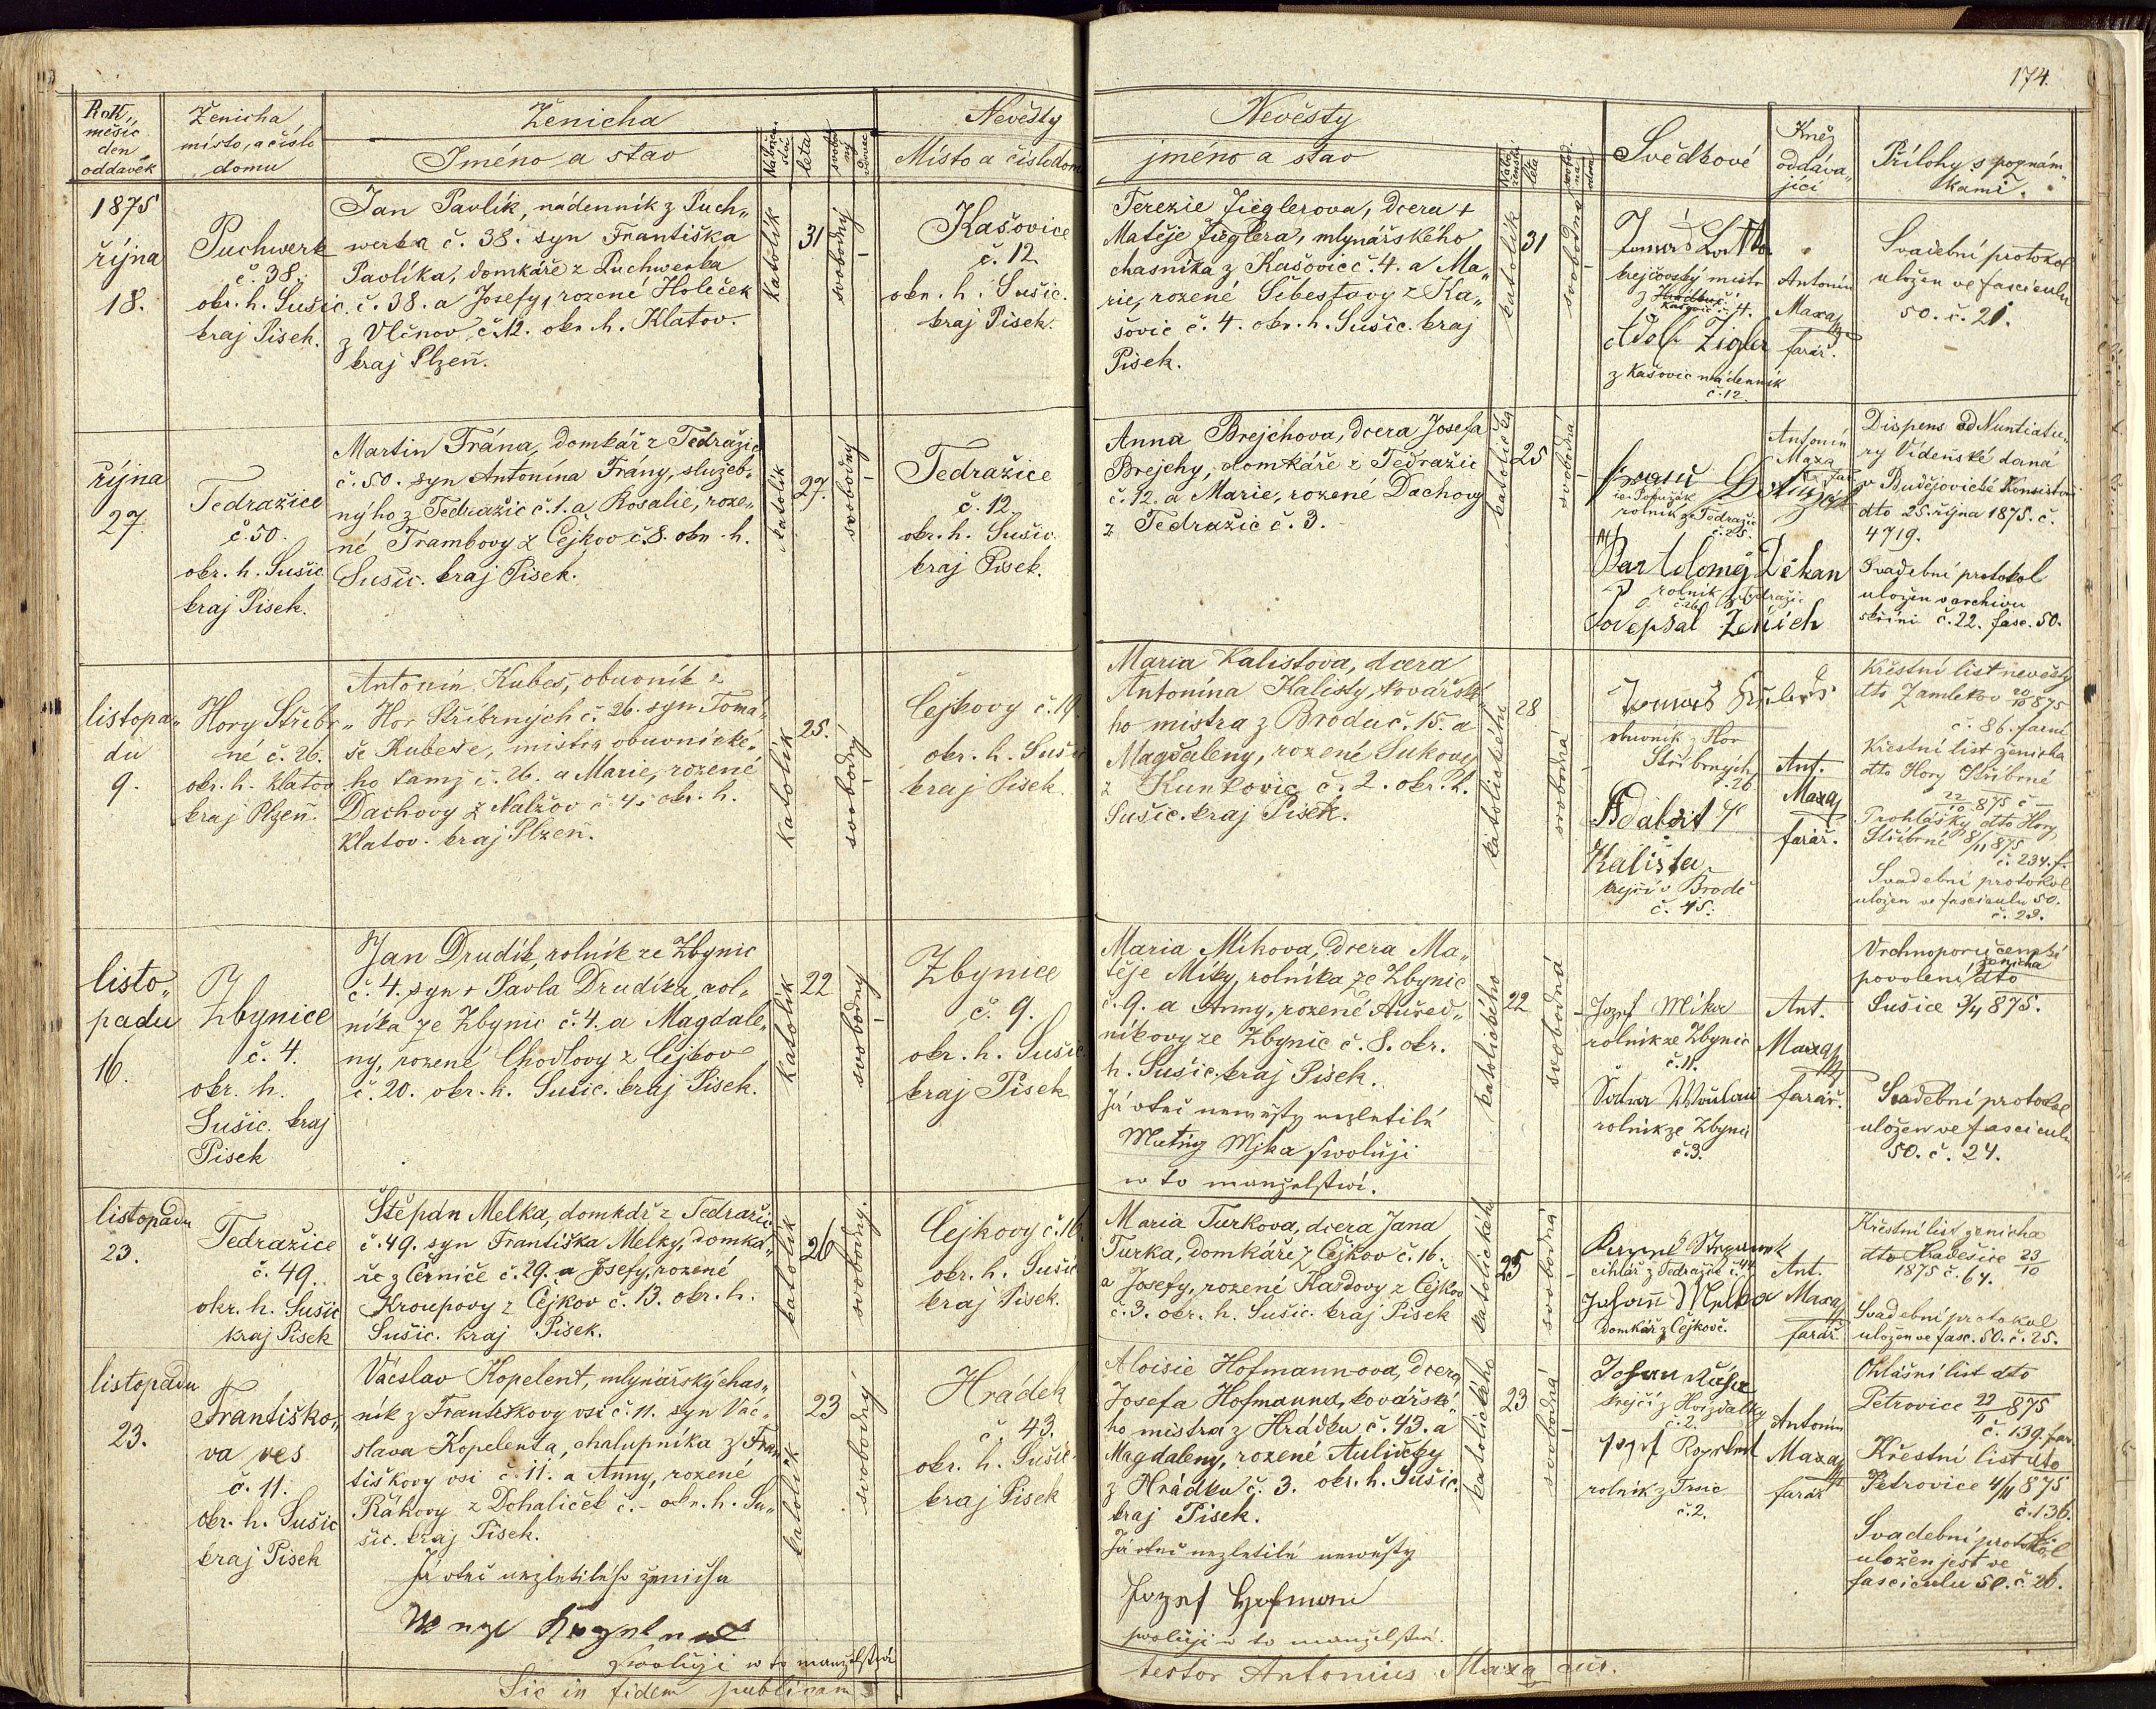 174.
Rok,
měsíc
den
oddavek
Ženicha
místo, a číslo
domu
Ženicha
Jméno a stav
léta
Nevěsty
Místo a číslo domu
Nevěsty
jméno a stav
léta
Svědkové
Kněz
oddáva„
jící
Přílohy s poznám„
kami.
1875
října
18.
Puchwerk
č. 38.
okr. h. Sušic.
kraj Písek.
Jan Pavlík, nádenník z Puch„
werka č. 38. syn Františka
Pavlíka, domkáře z Puchwerka
č. 38. a Josefy, rozené Holeček
z Vlčnov č. 12. okr. h. Klatov.
kraj Plzeň.
katolík
31
svobodný
Kašovice
č. 12
okr. h. Sušic.
kraj Písek.
Terezie Zieglerova, dcera +
Matěje Zieglera, mlynářského
chasníka z Kašovic č. 4. a Ma„
rie, rozené Šebestovy z Ka„
šovic č. 4. okr. h. Sušic. kraj
Písek.
katolík
31
svobodná
Tomáš
krejčovský mistr
z
Kašovic č. 4.
Adolf Zigler
z Kašovic nádenník
č. 12.
Antonín
Maxa
farář.
Svadební protokol
uložen ve fasciculu
50. č. 21.
října
27.
Tedražice
č. 50.
okr. h. Sušic
kraj Písek.
Martin Frána, domkář z Tedražic
č. 50. syn Antonína Frány, služeb„
nýho z Tedražic č. 1. a Rosalie, roze„
né Trambovy z Čejkov č. 8. okr. h.
Sušic. kraj Písek.
katolík
27.
svobodný
Tedražice
č. 12.
okr. h. Sušic.
kraj Písek.
Anna Brejchova, dcera Josefa
Brejchy, domkáře z Tedražic
č. 12. a Marie, rozené Dachovy
z Tedražic č. 3.
katolička
25
svobodná
rolník z Tedražic
č. 25.
Bartoloměj Děkan
rolník z Tedražic
č. 26
podepsal Ženich
Antonín
Maxa
far.
Dispens od Nuntiatu„
ry Vídeňské daná
v Budějovické Konsistoři
dto 25. října 1875. č.
4719.
Svadební protokol
uložen v archivu
skříni č. 22. fasc. 50.
listopa„
du
9.
Hory Stříbr„
né č. 26.
okr. h. Klatov
kraj Plzeň.
Antonín Kubeš, obuvník z
Hor Stříbrných č. 26. syn Tomá„
še Kubeše, mistra obuvnické„
ho tamž č. 26. a Marie, rozené
Dachovy z Nalžov č. 4. okr. h.
Klatov. kraj Plzeň.
katolík
25.
svobodný
Čejkovy č. 19
okr. h. Sušic
kraj Písek.
Maria Kalistova, dcera
Antonína Kalisty, kovářské„
ho mistra z Brodu č. 15. a
Magdaleny, rozené Sukovy
z Kunkovic č. 2. okr. h.
Sušic. kraj Písek.
28
svobodná
Tomáš Kubeš
obuvník z Hor
Stříbrných
č. 26
Adalbert
Kalista
krejčí v Brodě
č. 45.
Ant.
Maxa
farář.
Křestní list nevěsty
dto Zamlekov 20/10 875
č. 86. farní
Křestní list ženicha
dto Hory Stříbrné
22/10 875 č —
Prohlášky dto Hory
Stříbrné 8/11 875
č. 234. f.
Svadební protokol
uložen ve fasciculu 50.
č. 23.
listo„
padu
16.
Z
Zbynice
č. 4.
okr. h.
Sušic. kraj
Písek
Jan Drudík, rolník ze Zbynic
č. 4. syn + Pavla Drudíka, rol„
níka ze Zbynic č. 4. a Magdale„
ny, rozené Chodlovy z Čejkov
č. 20. okr. h. Sušic. kraj Písek.
katolík
22
svobodný
Zbynice
č. 9.
okr. h. Sušic.
kraj Písek
Maria Míkova, dcera Ma„
těje Míky, rolníka ze Zbynic
č. 9. a Anny, rozené Auřed„
níkovy ze Zbynic č. 8. okr.
h. Sušic. kraj Písek.
Já otec newěsty nezletilé
Matěg Mjka swoluji
w to manželstwí.
katolického
22
svobodná
Jozef Míka
rolník ze Zbynic
č. 11.
rolník ze Zbynic
č. 3.
Ant.
Maxa
farář.
Vrchnoporučenské
ženicha
povolení dto
Sušice 3/4 875.
Svadební protokol
uložen ve fasciculu
50. č. 24.
listopadu
23.
Tedražice
č. 49.
okr. h. Sušic
kraj Písek
Štěpán Melka, domkář z Tedražic
č. 49. syn Františka Melky, domká„
ře z Černíče č. 29. a Josefy, rozené
Kroupovy z Čejkov č. 13. okr. h.
Sušic. kraj Písek.
katolík
26
svobodný.
Čejkovy č. 16
okr. h. Sušic
kraj Písek.
Maria Turkova, dcera Jana
Turka, domkáře z Čejkov č. 16.
a Josefy, rozené Kardovy z Čejkov
č. 3. okr. h. Sušic. kraj Písek
25
svobodná
cihlář z Tedražic č. 44
Johann Melka
domkář z Čejkov č.
Ant.
Maxa
farář.
Křestní list ženicha
dto Nadešice 23/10
1875 č. 64.
Svadební protokol
uložen ve fasc. 50. č. 25.
listopadu
23.
Františko„
va ves
č. 11.
okr. h. Sušic
kraj Písek
Václav Kopelent, mlynářský chas„
ník z Františkovy vsi č. 11. syn Vác„
slava Kopelenta, chalupníka z Fran
tiškovy vsi č. 11. a Anny, rozené
Řákovy z Dohaliček č. – okr. h. Su„
šic. kraj Písek.
Já otec nezletilého ženicha
Wenzl Kopelent
swoluji w to manželstwí
katolík
23
svobodný
Hrádek
č. 43.
okr. h. Sušic
kraj Písek
Aloisie Hofmannova, dcera
Josefa Hofmanna, kovářské„
ho mistra z Hrádku č. 43. a
Magdaleny, rozené Auličky
z Hrádku č. 3. okr. h. Sušic.
kraj Písek.
Já otec nezletilé newěsty
Jozef Hofman
swoluji w to manželstwí.
katolického
23
svobodná
Johan
krejčí z Hvízdalky
č. 2
Jozef Kopelent
rolník z Trsic
č. 2.
Antonín
Maxa
farář
Ohlášní list dto
Petrovice 22/11 875
č. 139. far.
Křestní list dto
Petrovice 4/11 875
č. 136.
Svadební protokol
uložen jest ve
fasciculu 50. č. 26.
Sic in fidem publicam
testor Antonius Maxa cur.